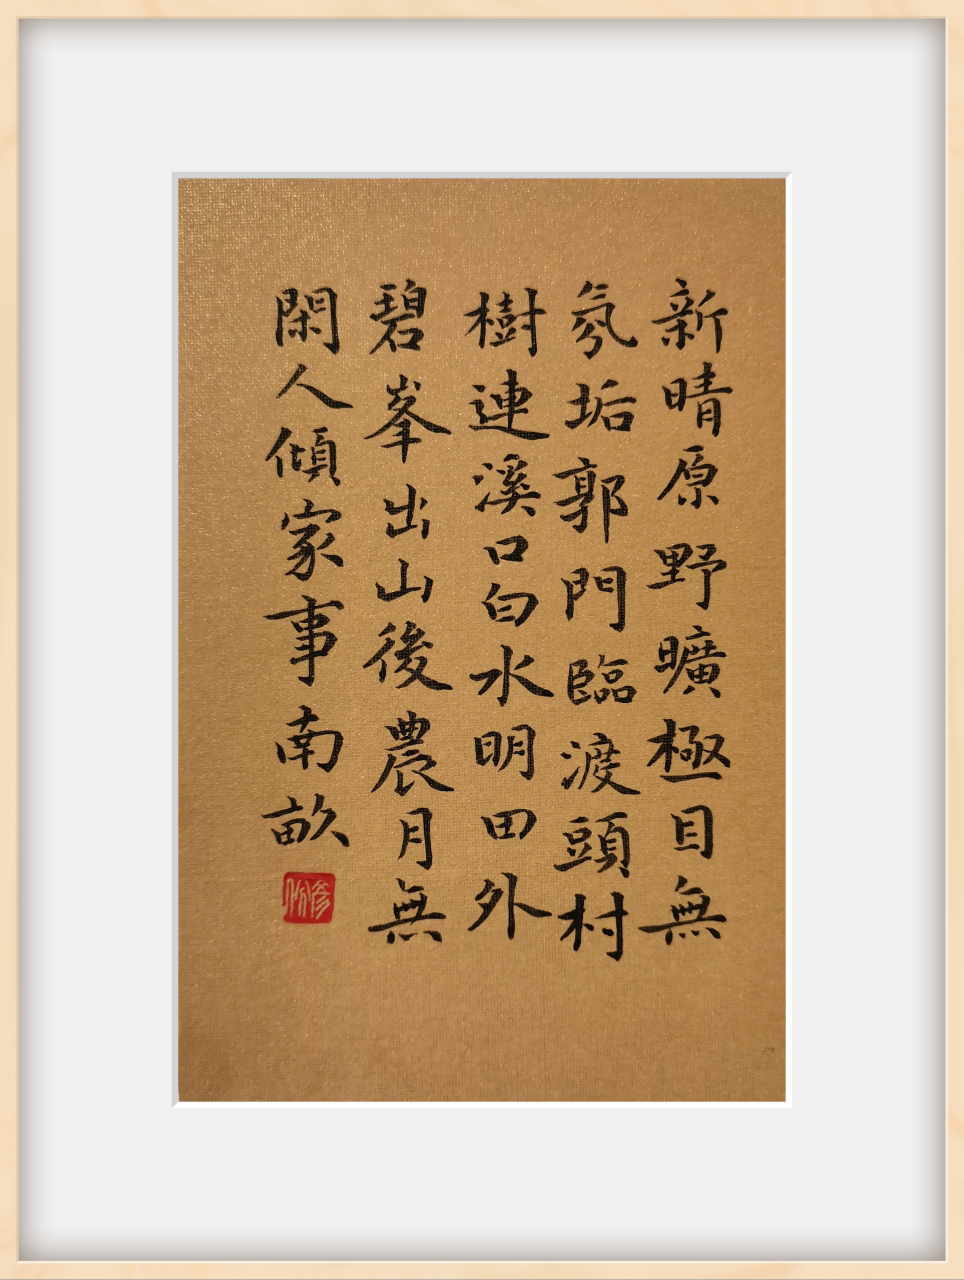 新晴原野曠極目無
氛垢郭門臨渡頭村
樹連溪口白水明田外
碧峯出山後農月無
閑人傾家事南畝